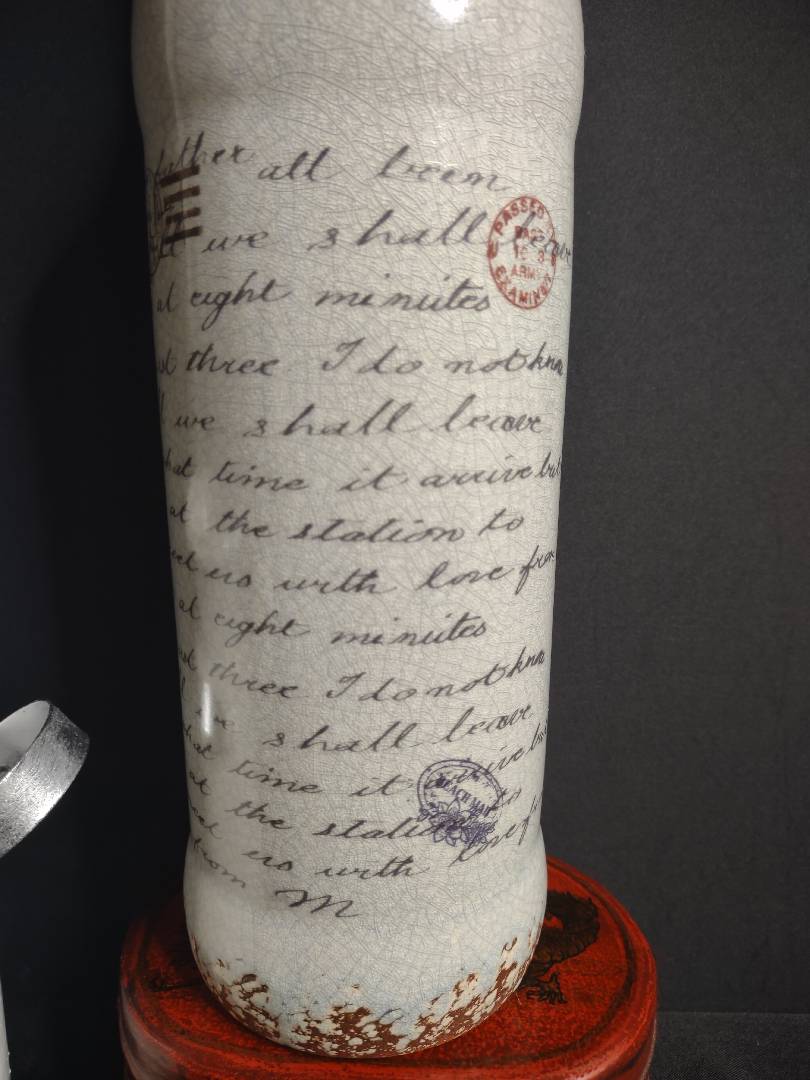 father all been
we shall leave
PASSED
ARMY
EXAMINER
at eight minuites
three I do not know
we shall leave
time it arrive but
at the station to
us with love from
at eight minuites
three I do not know
we shall leave
time it arrive but
at the station to
us with love
from M